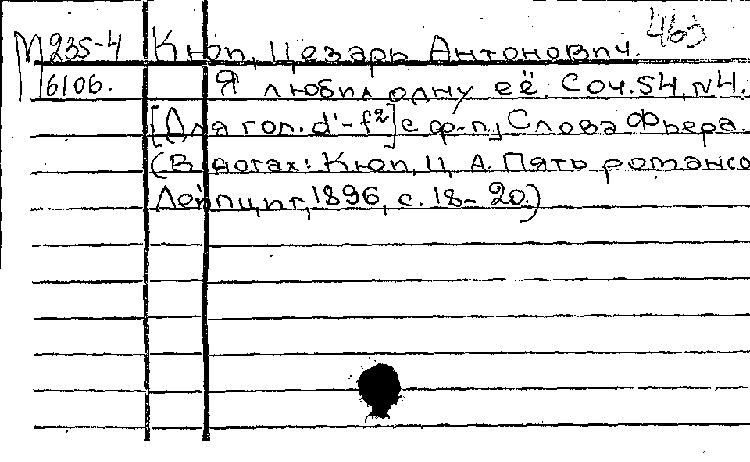 463
М 235-4 Кюи, Цезарь Антонович.
6106. Я любил одну её. Соч.54, №4.
[Для гол. d'-f²] с ф-п., Слова Фьера.
(В нотах: Кюи, Ц. А. Пять романсо
Лейпциг, 1896, с. 18-20.)